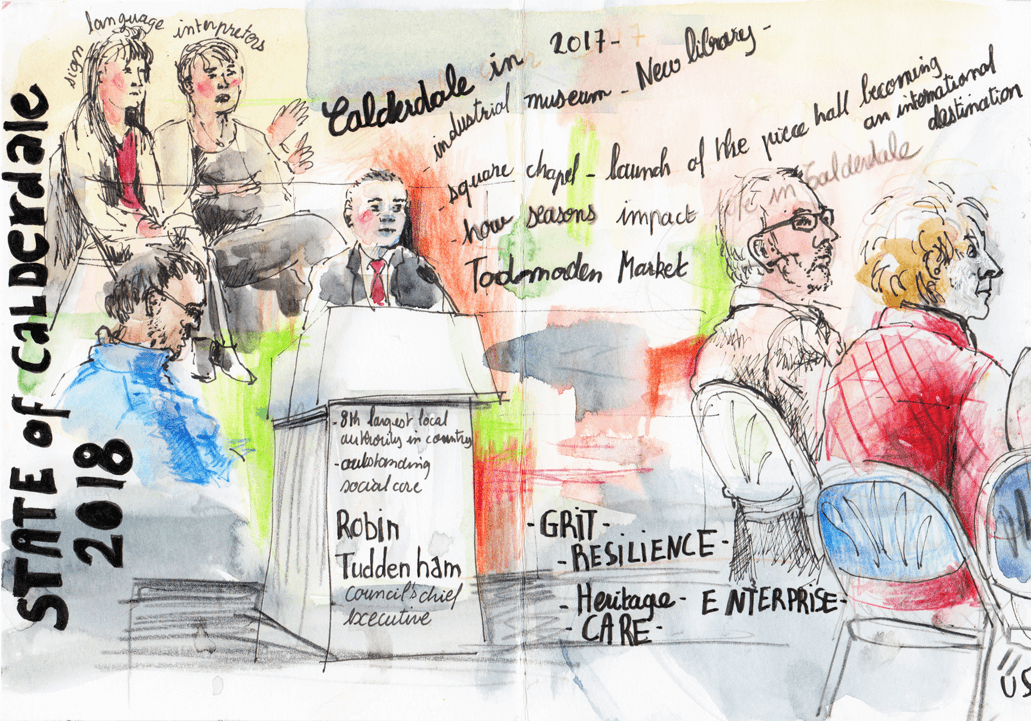 STATE of CALDERDALE
2018
sign language interpretors
Calderdale in 2017-
- industrial museum - New library -
- square chapel - launch of the piece hall becoming
an international
destination
- how seasons impact
Todmorden Market
in Calderdale
- 8th largest local
authority in country
- outstanding
social care
Robin
Tuddenham
council's chief
executive
- GRIT -
- RESILIENCE -
- Heritage - ENTERPRISE -
- CARE -